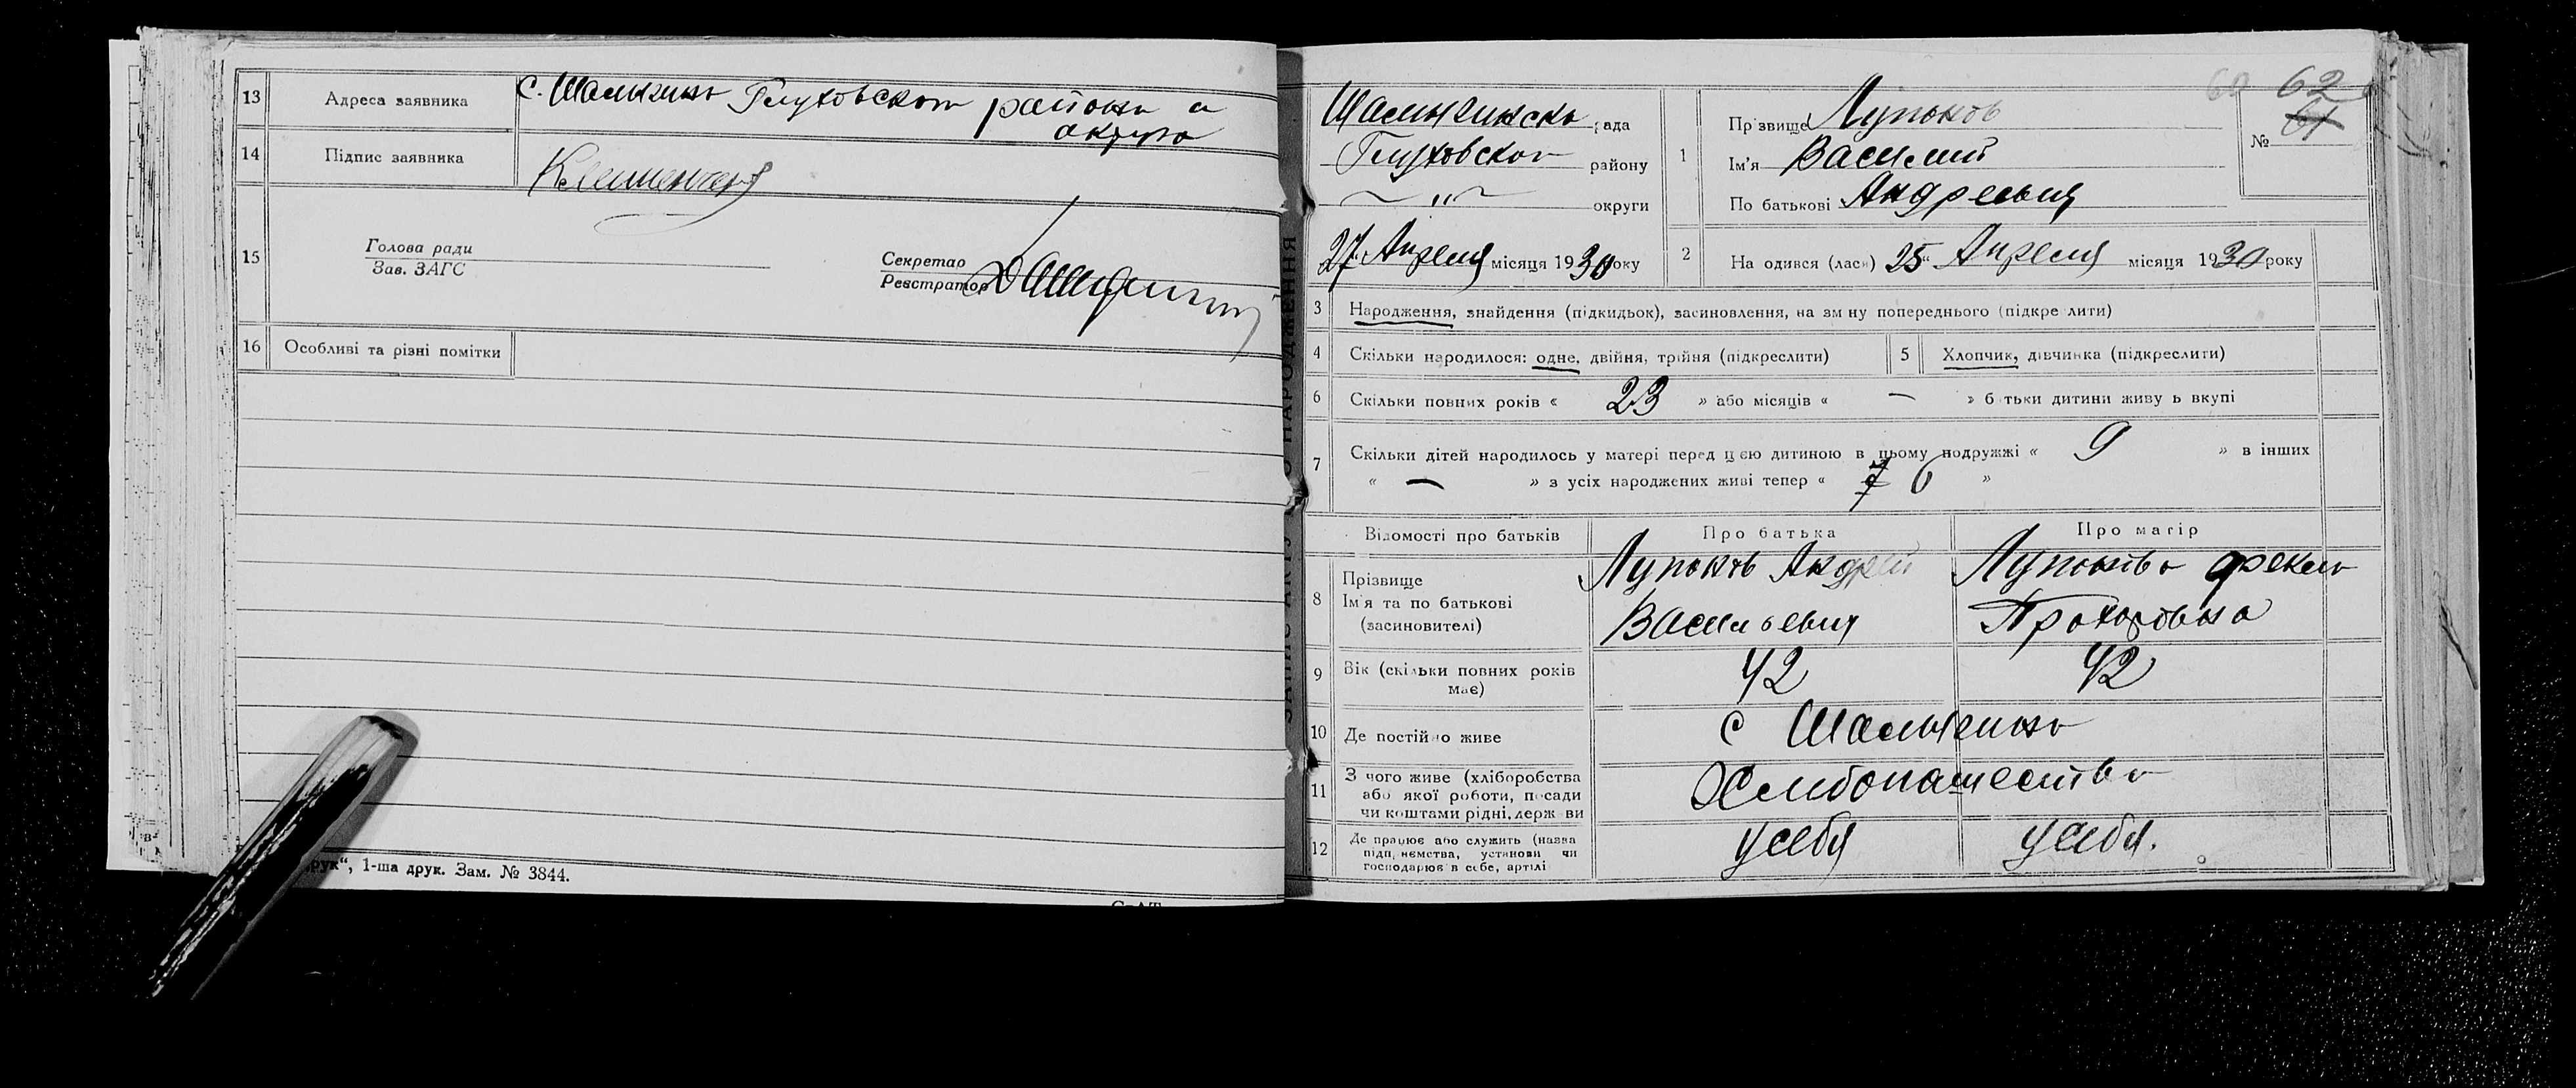 13 Адреса заявника с. Шалыгино Глуховского района и
округа
14 Підпис заявника
15 Голова ради
Зав. ЗАГС
Секретар
Реєстратор
16 Особливі та різні помітки
друк“, 1-ша друк. Зам. № 3844.
Шалыгинско рада
Глуховского району
—〃— округи
27 Апреля місяця 1930 року
1 Прізвище Лупонов
Ім'я Василий
По батькові Андреевич
62
61
№
2 На одився (лась) 25 “ Апреля місяця 1930 року
3 Народження, знайдення (підкидьок), засиновлення, на зм ну попереднього (підкре лити)
4 Скільки народилося: одне, двійня, трійня (підкреслити)
5 Хлопчик, дівчинка (підкреслити)
6 Скільки повних років « 23 » або місяців « — » б тьки дитини живу ь вкупі
7 Скільки дітей народилось у матері перед цією дитиною в цьому подружжі « 9 » в інших
« — » з усіх народжених живі тепер « 7 6 »
Відомості про батьків Про батька Про матір
8 Прізвище
Ім'я та по батькові
(засиновителі)
Лупонов Андрей
Васильевич
Лупонова Фекла
Прохоровна
9 Вік (скільки повних років
має)
42 42
10 Де постійно живе с Шалыгино
11 З чого живе (хліборобства
або якої роботи, посади
чи коштами рідні, держ ви
Хлебопашество
12 Де працює або служить (назва
підп, немства, установи чи
господарює в себе, артілі
у себя у себя.